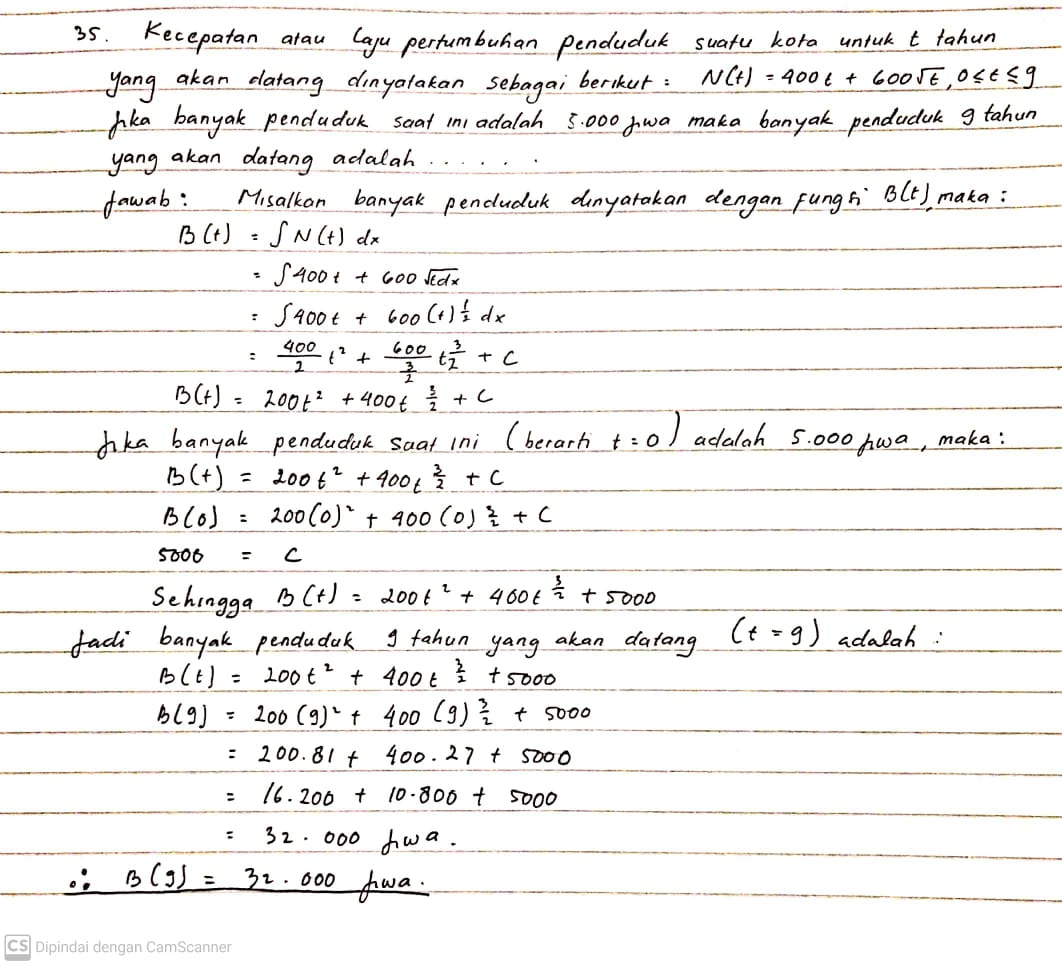 35. Kecepatan atau laju pertumbuhan penduduk suatu kota untuk t tahun
yang akan datang dinyatakan sebagai berikut : N(t) = 400t + 600√t, 0≤t≤9
Jika banyak penduduk saat ini adalah 5.000 jiwa maka banyak penduduk 9 tahun
yang akan datang adalah ......
Jawab : Misalkan banyak penduduk dinyatakan dengan fungsi B(t) maka :
B(t) = ∫N(t) dx
= ∫400t + 600 √t dx
= ∫400t + 600 (t)^1/2 dx
= 400/2 t² + 600/(3/2) t^3/2 + C
B(t) = 200t² + 400t^3/2 + C
Jika banyak penduduk saat ini (berarti t=0) adalah 5.000 jiwa, maka :
B(t) = 200t² + 400t^3/2 + C
B(0) = 200(0)² + 400(0)^3/2 + C
5000 = C
Sehingga B(t) = 200t² + 400t^3/2 + 5000
Jadi banyak penduduk 9 tahun yang akan datang (t=9) adalah :
B(t) = 200t² + 400t^3/2 + 5000
B(9) = 200(9)² + 400(9)^3/2 + 5000
= 200.81 + 400.27 + 5000
= 16.200 + 10.800 + 5000
= 32.000 jiwa.
∴ B(9) = 32.000 jiwa.
CS Dipindai dengan CamScanner